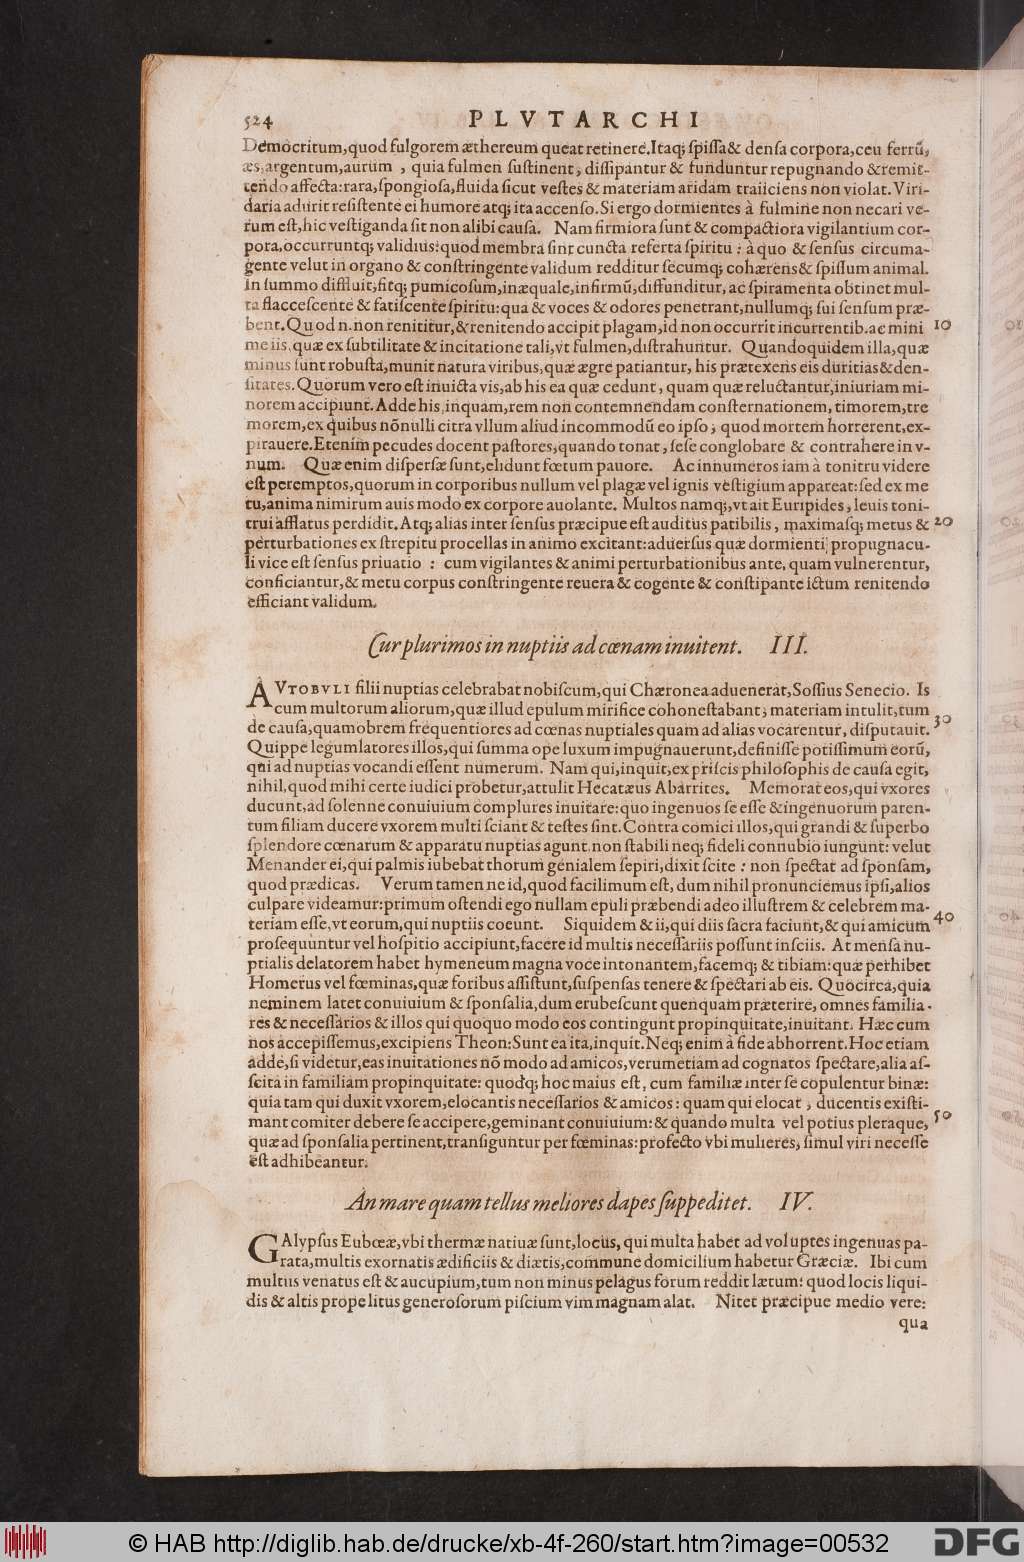 524 PLVTARCHI
Democritum, quod fulgorem æthereum queat retinere. Itaq; spissa & densa corpora, ceu ferrũ,
æs, argentum, aurum, quia fulmen sustinent, dissipantur & funduntur repugnando & remit-
tendo affecta: rara, spongiosa, fluida sicut vestes & materiam aridam traiiciens non violat. Viri-
daria adurit resistente ei humore atq; ita accenso. Si ergo dormientes à fulmine non necari ve-
rum est, hic vestiganda sit non alibi causa. Nam firmiora sunt & compactiora vigilantium cor-
pora, occurruntq; validius: quod membra sint cuncta referta spiritu: à quo & sensus circuma-
gente velut in organo & constringente validum redditur secumq; cohærens & spissum animal.
In summo diffluit, fitq; pumicosum, inæquale, infirmũ, diffunditur, ac spiramenta obtinet mul-
ta flaccescente & fatiscente spiritu: qua & voces & odores penetrant, nullumq; sui sensum præ-
bent. Quod n. non renititur, & renitendo accipit plagam, id non occurrit incurrentib. ac mini 10
me iis, quæ ex subtilitate & incitatione tali, vt fulmen, distrahuntur. Quandoquidem illa, quæ
minus sunt robusta, munit natura viribus, quæ ægre patiantur, his prætexens eis duritias & den-
sitates. Quorum vero est inuicta vis, ab his ea quæ cedunt, quam quæ reluctantur, iniuriam mi-
norem accipiunt. Adde his, inquam, rem non contemnendam consternationem, timorem, tre
morem, ex quibus nõnulli citra vllum aliud incommodũ eo ipso, quod mortem horrerent, ex-
pirauere. Etenim pecudes docent pastores, quando tonat, sese conglobare & contrahere in v-
num. Quæ enim dispersæ sunt, elidunt fœtum pauore. Ac innumeros iam à tonitru videre
est peremptos, quorum in corporibus nullum vel plagæ vel ignis vestigium appareat: sed ex me
tu, anima nimirum auis modo ex corpore auolante. Multos namq;, vt ait Euripides, leuis toni-
trui afflatus perdidit. Atq; alias inter sensus præcipue est auditus patibilis, maximasq; metus & 20
perturbationes ex strepitu procellas in animo excitant: aduersus quæ dormienti propugnacu-
li vice est sensus priuatio: cum vigilantes & animi perturbationibus ante, quam vulnerentur,
conficiantur, & metu corpus constringente reuera & cogente & constipante ictum renitendo
efficiant validum.
Cur plurimos in nuptiis ad cœnam inuitent. III.
AVTOBVLI filii nuptias celebrabat nobiscum, qui Chæronea aduenerat, Sossius Senecio. Is
cum multorum aliorum, quæ illud epulum mirifice cohonestabant, materiam intulit, tum
de causa, quamobrem frequentiores ad cœnas nuptiales quam ad alias vocarentur, disputauit. 30
Quippe legumlatores illos, qui summa ope luxum impugnauerunt, definisse potissimum eorũ,
qui ad nuptias vocandi essent numerum. Nam qui, inquit, ex priscis philosophis de causa egit,
nihil, quod mihi certe iudici probetur, attulit Hecatæus Abarrites. Memorat eos, qui vxores
ducunt, ad solenne conuiuium complures inuitare: quo ingenuos se esse & ingenuorum paren-
tum filiam ducere vxorem multi sciant & testes sint. Contra comici illos, qui grandi & superbo
splendore cœnarum & apparatu nuptias agunt. non stabili neq; fideli connubio iungunt: velut
Menander ei, qui palmis iubebat thorum genialem sepiri, dixit scite: non spectat ad sponsam,
quod prædicas. Verum tamen ne id, quod facilimum est, dum nihil pronunciemus ipsi, alios
culpare videamur: primum ostendi ego nullam epuli præbendi adeo illustrem & celebrem ma-
teriam esse, vt eorum, qui nuptiis coeunt. Siquidem & ii, qui diis sacra faciunt, & qui amicum 40
prosequuntur vel hospitio accipiunt, facere id multis necessariis possunt insciis. At mensa nu-
ptialis delatorem habet hymeneum magna voce intonantem, facemq; & tibiam: quæ perhibet
Homerus vel fœminas, quæ foribus assistunt, suspensas tenere & spectari ab eis. Quocirca, quia
neminem latet conuiuium & sponsalia, dum erubescunt quenquam præterire, omnes familia-
res & necessarios & illos qui quoquo modo eos contingunt propinquitate, inuitant. Hæc cum
nos accepissemus, excipiens Theon: Sunt ea ita, inquit. Neq; enim à fide abhorrent. Hoc etiam
adde, si videtur, eas inuitationes nõ modo ad amicos, verumetiam ad cognatos spectare, alia as-
scita in familiam propinquitate: quodq; hoc maius est, cum familiæ inter se copulentur binæ:
quia tam qui duxit vxorem, elocantis necessarios & amicos: quam qui elocat, ducentis existi-
mant comiter debere se accipere, geminant conuiuium: & quando multa vel potius pleraque, 50
quæ ad sponsalia pertinent, transiguntur per fœminas: profecto vbi mulieres, simul viri necesse
est adhibeantur.
An mare quam tellus meliores dapes suppeditet. IV.
GAlypsus Eubœæ, vbi thermæ natiuæ sunt, locus, qui multa habet ad voluptes ingenuas pa-
rata, multis exornatis ædificiis & diætis, commune domicilium habetur Græciæ. Ibi cum
multus venatus est & aucupium, tum non minus pelagus forum reddit lætum: quod locis liqui-
dis & altis prope litus generosorum piscium vim magnam alat. Nitet præcipue medio vere:
qua
© HAB http://diglib.hab.de/drucke/xb-4f-260/start.htm?image=00532
DFG